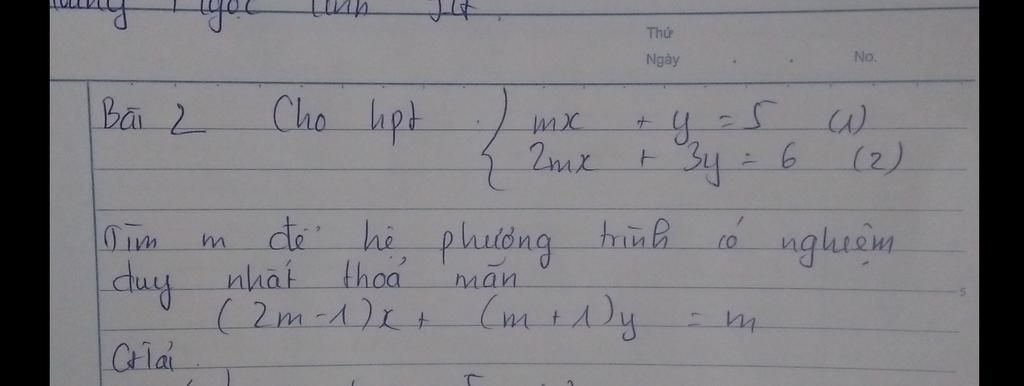 Thứ
Ngày No.
Bài 2 Cho hpt { mx + y = 5 (1)
2mx + 3y = 6 (2)
Tìm m để hệ phương trình có nghiệm
duy nhất thoả mãn
(2m-1)x + (m+1)y = m
Giải